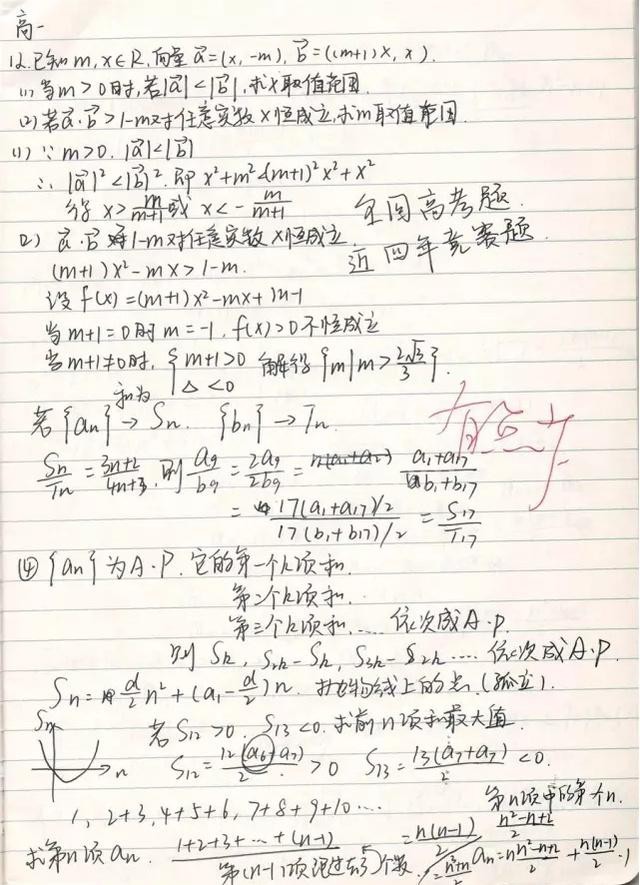 高一
12.已知m,x∈R,向量a⃗=(x,-m),b⃗=((m+1)x,x).
(1)当m>0时,若|a⃗|<|b⃗|,求x取值范围.
(2)若a⃗·b⃗>1-m对任意实数x恒成立,求m取值范围.
(1)∵m>0.|a⃗|<|b⃗|
∴|a⃗|²<|b⃗|².即x²+m²<(m+1)²x²+x²
得x>m/(m+1)或x<-m/(m+1)
全国高考题.
近四年竞赛题.
2)a⃗·b⃗ 1-m对任意实数x恒成立
(m+1)x²-mx>1-m.
设f(x)=(m+1)x²-mx+m-1
当m+1=0时m=-1,f(x)>0不恒成立
当m+1≠0时,{m+1>0 Δ<0 解得{m|m>2√3/3}.
和为
若{an}→Sn. {bn}→Tn.
Sn/Tn=(3n+2)/(4n+3),则a9/b9=2a9/2b9= (a1+a17)/(b1+b17)
=17(a1+a17)/2/17(b1+b17)/2=S17/T17
④{an}为A.P.它的第一个k项和.
第二个k项和..
第三个k项和.....依次成A.P.
则Sk,S2k-Sk,S3k-S2k....依次成A.P.
Sn=d/2n²+(a1-d/2)n.抛物线上的点.(孤立).
Sn
n
若S12>0.S13<0.求前n项和最大值.
S12=12(a6+a7)/2>0 S13=13(a7+a7)/2<0.
1,2+3,4+5+6,7+8+9+10....
第n项中的第一个n.
(n²-n+2)/2
求第n项an. 1+2+3+...+(n-1)=n(n-1)/2
第(n-1)项 个数. an=n·(n²-n+2)/2+n(n-1)/2·1